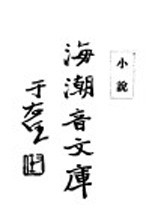 小說
海潮音文庫
于右任